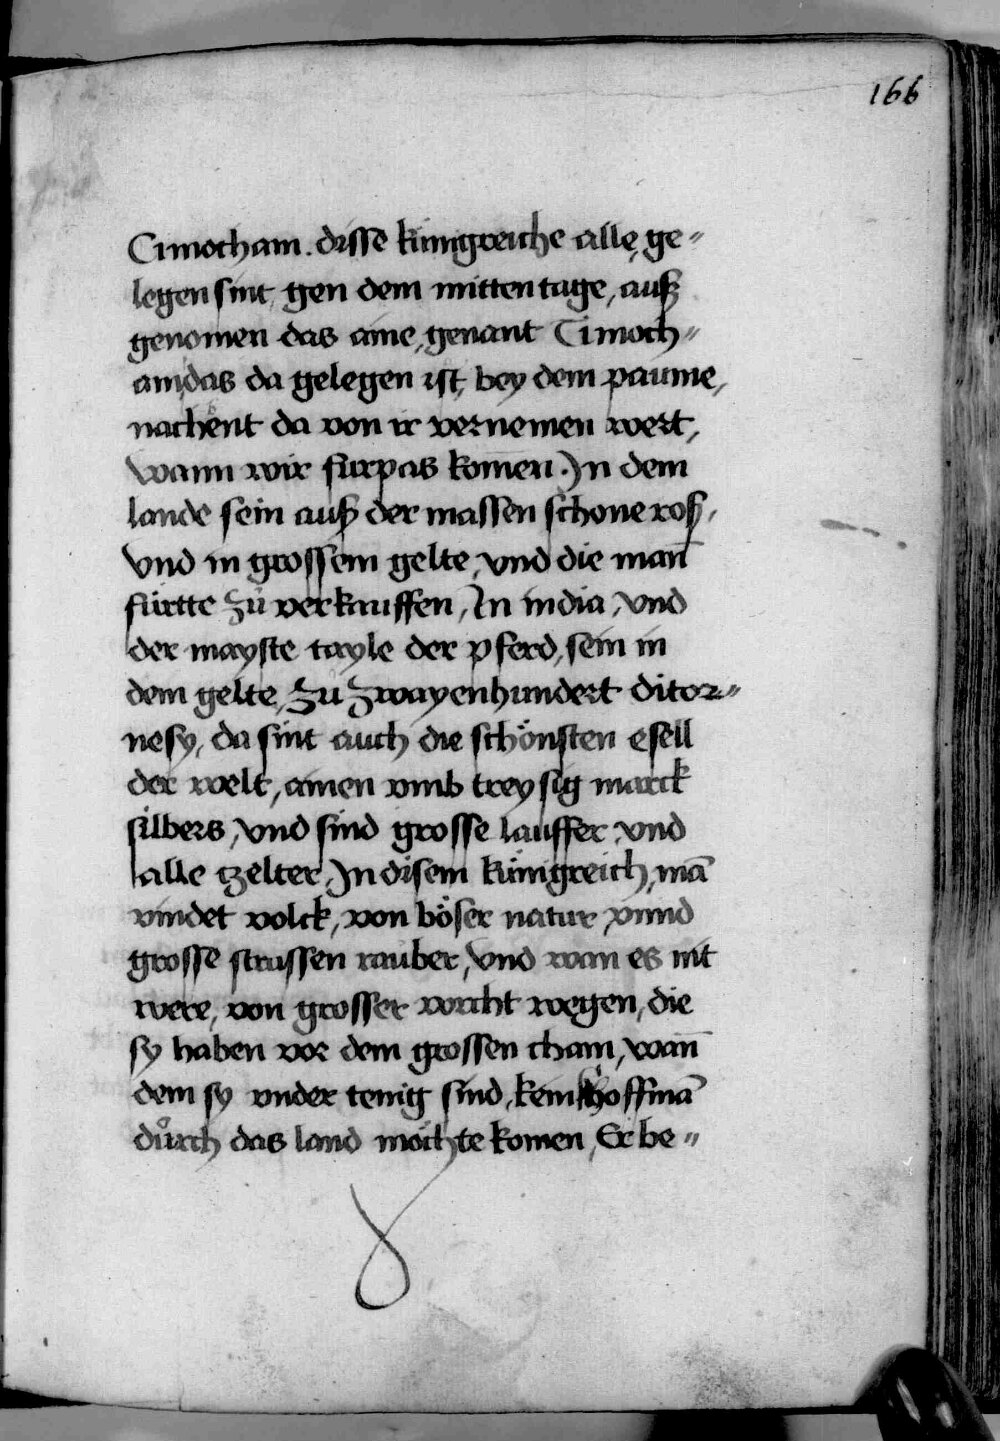 166
Timocham. disse künigreiche alle, ge〃
legen sint gen dem mittentage, auß
genomen das aine, genant Timoch〃
am, das da gelegen ist, bey dem paume,
nachent da von ir vernemen wert,
wann wir furpas komen. Jn dem
lande sein auß der massen schone roß,
vnd in grossem gelte, vnd die man̄
fürtte zů verkauffen, Jn india, vnd
der mayste tayle der pferd, sein in
dem gelte, zů zwayenhundert ditor〃
nesy, da sint auch die schönsten esell
der welt, ainen vmb treysig marck
silbers, vnd sind grosse lauffer, vnd
alle tzelter, Jn disem künigreich, mā
vindet volck, von böser natur, vnnd
grosse strassen rauber, vnd wan es nit
were, von grosser vorcht wegen, die
sy haben vor dem grossen cham, wan̄
dem sy vnder tenig sind, kein koffmā
důrch das land möchte komen, Er be〃